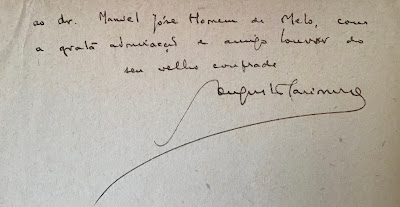 ao dr. Manuel José Homem de Melo, com
a grata admiração e amigo louvor do
seu velho confrade
Augusto Casimiro